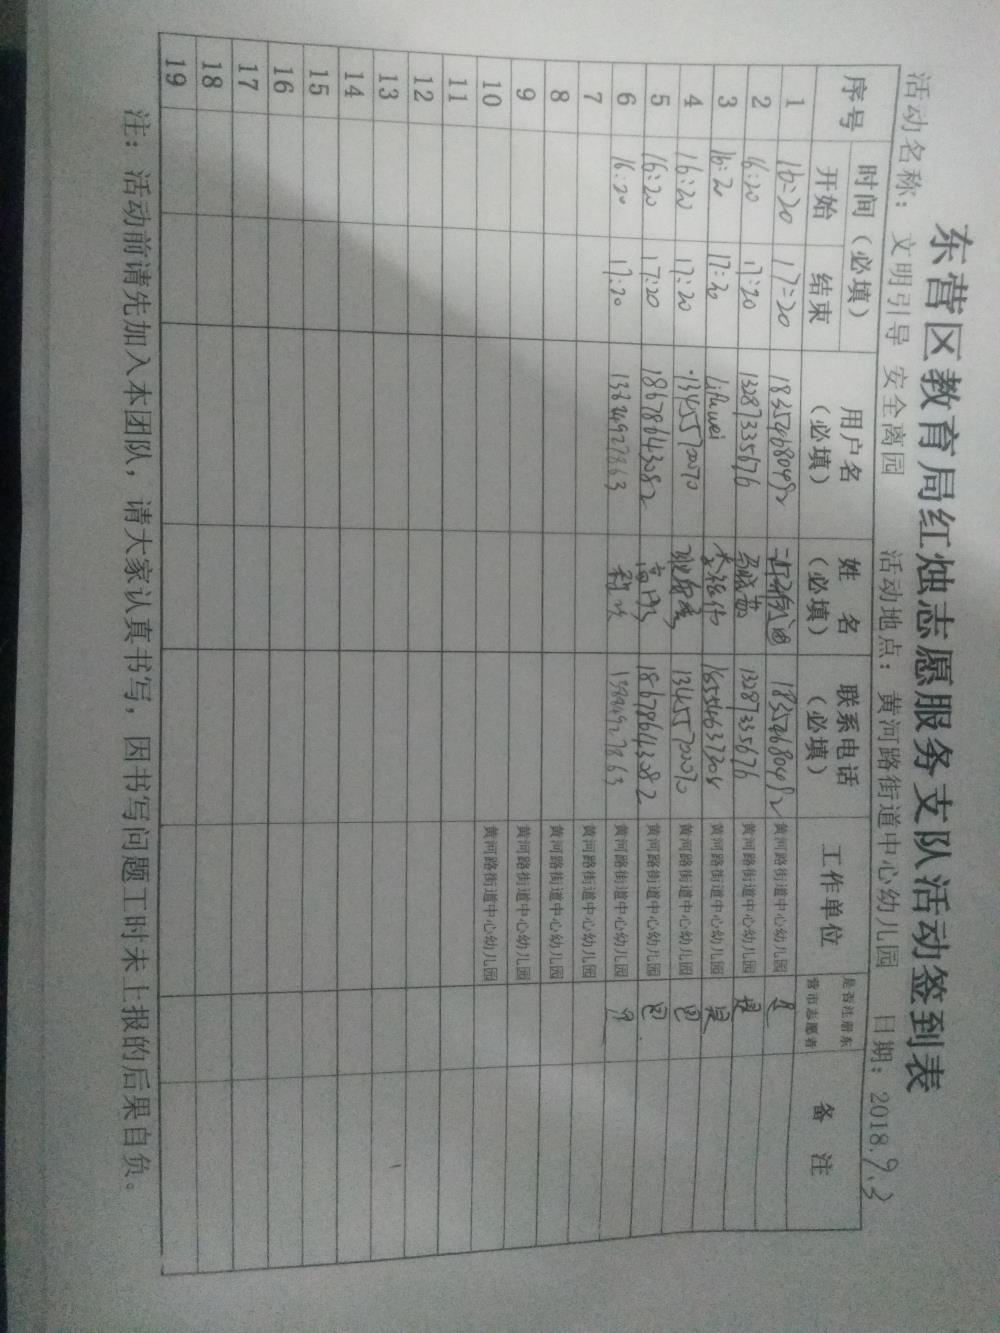 东营区教育局红烛志愿服务支队活动签到表
活动名称：文明引导 安全离园 活动地点：黄河路街道中心幼儿园 日期：2018.9.3
序号 时间（必填） 用户名（必填） 姓 名（必填） 联系电话（必填） 工作单位 是否注册东营市志愿者 备 注
开始 结束
1 16:20 17:20 18354680492 18354680492 黄河路街道中心幼儿园 是
2 16:20 17:20 13287335676 13287335676 黄河路街道中心幼儿园 是
3 16:20 17:20 黄河路街道中心幼儿园 是
4 16:20 17:20 13455570070 13455570070 黄河路街道中心幼儿园 是
5 16:20 17:20 18678643082 18678643082 黄河路街道中心幼儿园 是
6 16:20 17:20 黄河路街道中心幼儿园 是
7 黄河路街道中心幼儿园
8 黄河路街道中心幼儿园
9 黄河路街道中心幼儿园
10 黄河路街道中心幼儿园
11
12
13
14
15
16
17
18
19
注：活动前请先加入本团队，请大家认真书写，因书写问题工时未上报的后果自负。